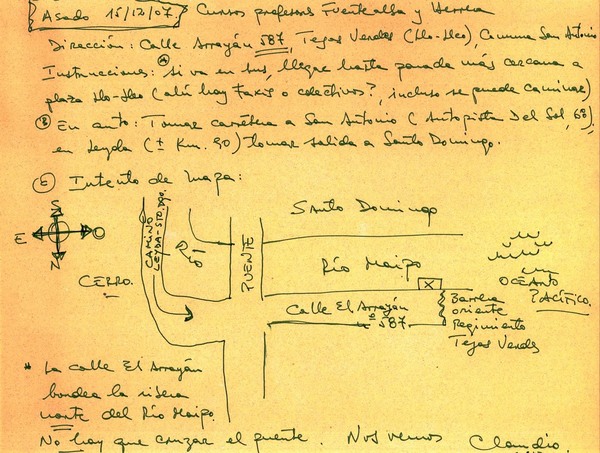 Asado 15/12/07. Cursos profesores Fuentealba y Herrera
Dirección: Calle Arrayán 587, Tejas Verdes (Llo-Lleo), Comuna San Antonio
Instrucciones: Ⓐ Si va en bus, llegar hasta parada más cercana a
plaza Llo-Lleo (ahí hay taxis o colectivos?, incluso se puede caminar)
Ⓑ En auto: Tomar carretera a San Antonio (Autopista Del Sol, 68),
en Leyda (± Km. 90) tomar salida a Santo Domingo.
Ⓒ Intento de mapa:
S
E O
N
CERRO.
CAMINO
LEYDA-STO.DGO.
Río
PUENTE
Santo Domingo
Río Maipo
X
OCEANO
PACÍFICO.
Calle El Arrayán
nº 587
Barrera
oriente
Regimiento
Tejas Verdes
* La calle El Arrayán
bordea la ribera
norte del Río Maipo.
No hay que cruzar el puente. Nos vemos Claudio